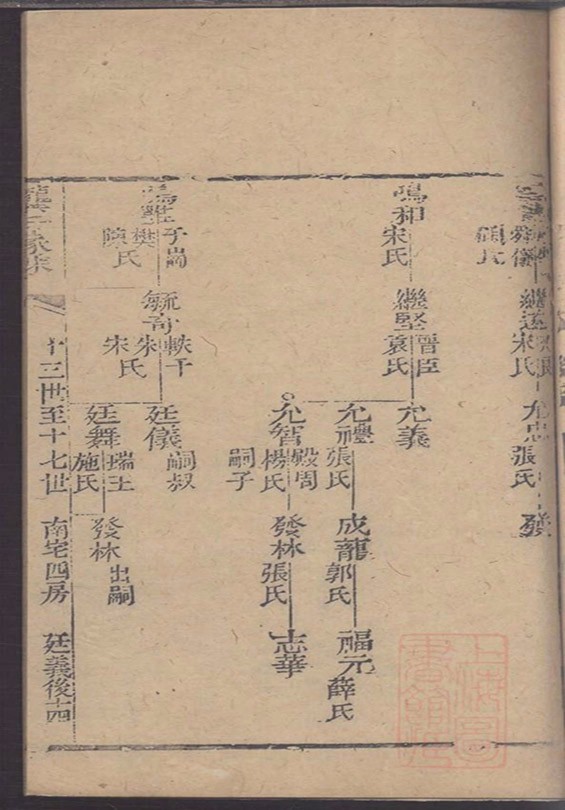 舜儀
顧氏
繼遠
宋氏
允忠
張氏
發
鳴和
宋氏
繼堅
晉臣
袁氏
允義
允禮
張氏
成龍
郭氏
福元
薛氏
允智
殿周
楊氏
嗣子
發林
張氏
志華
子嵩
樊
陳氏
毓奇
軼千
朱
宋氏
廷儀
嗣叔
廷舞
瑞玉
施氏
發林
出嗣
十三世至十七世
南宅四房
廷義後十四